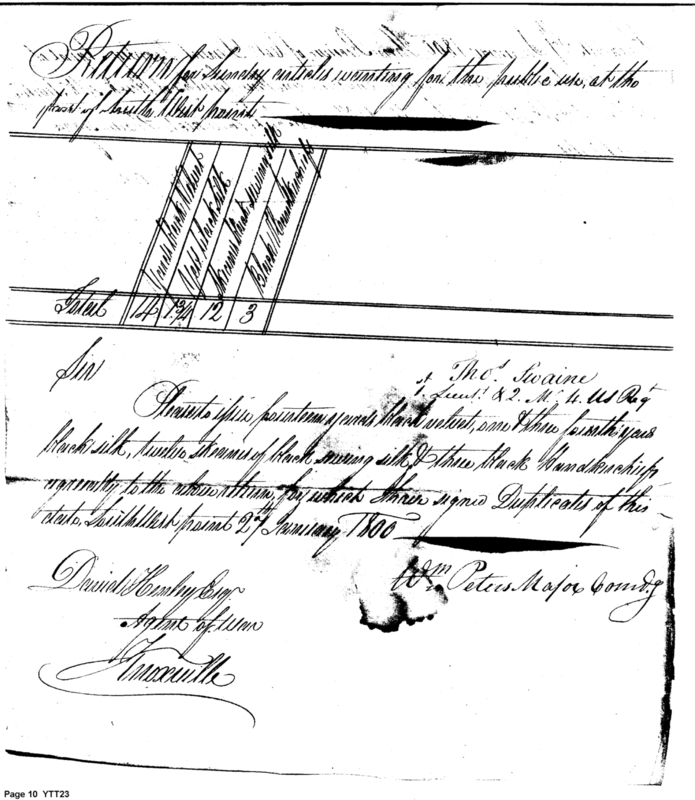 Return for Sundry articles wanting for the public use, at the
post of South West point
Yards Black Velvet
Yds. black Silk
Skeins black sewing silk
Black Handkerchiefs
Total 14 1¾ 12 3
Thos. Swaine
1 Lieut. & Q. Mr. 4. US Regt
Sir
Please to issue fourteen yards black velvet, one & three fourth yard
black silk, twelve skeins of black sewing silk, & three black Handkerchiefs
agreeably to the above return, for which I have signed Duplicates of this
date. South West point 27th January 1800
Wm Peters Major Comdg
David Henley Esqr
Agent of War
Knoxville
Page 10 YTT23